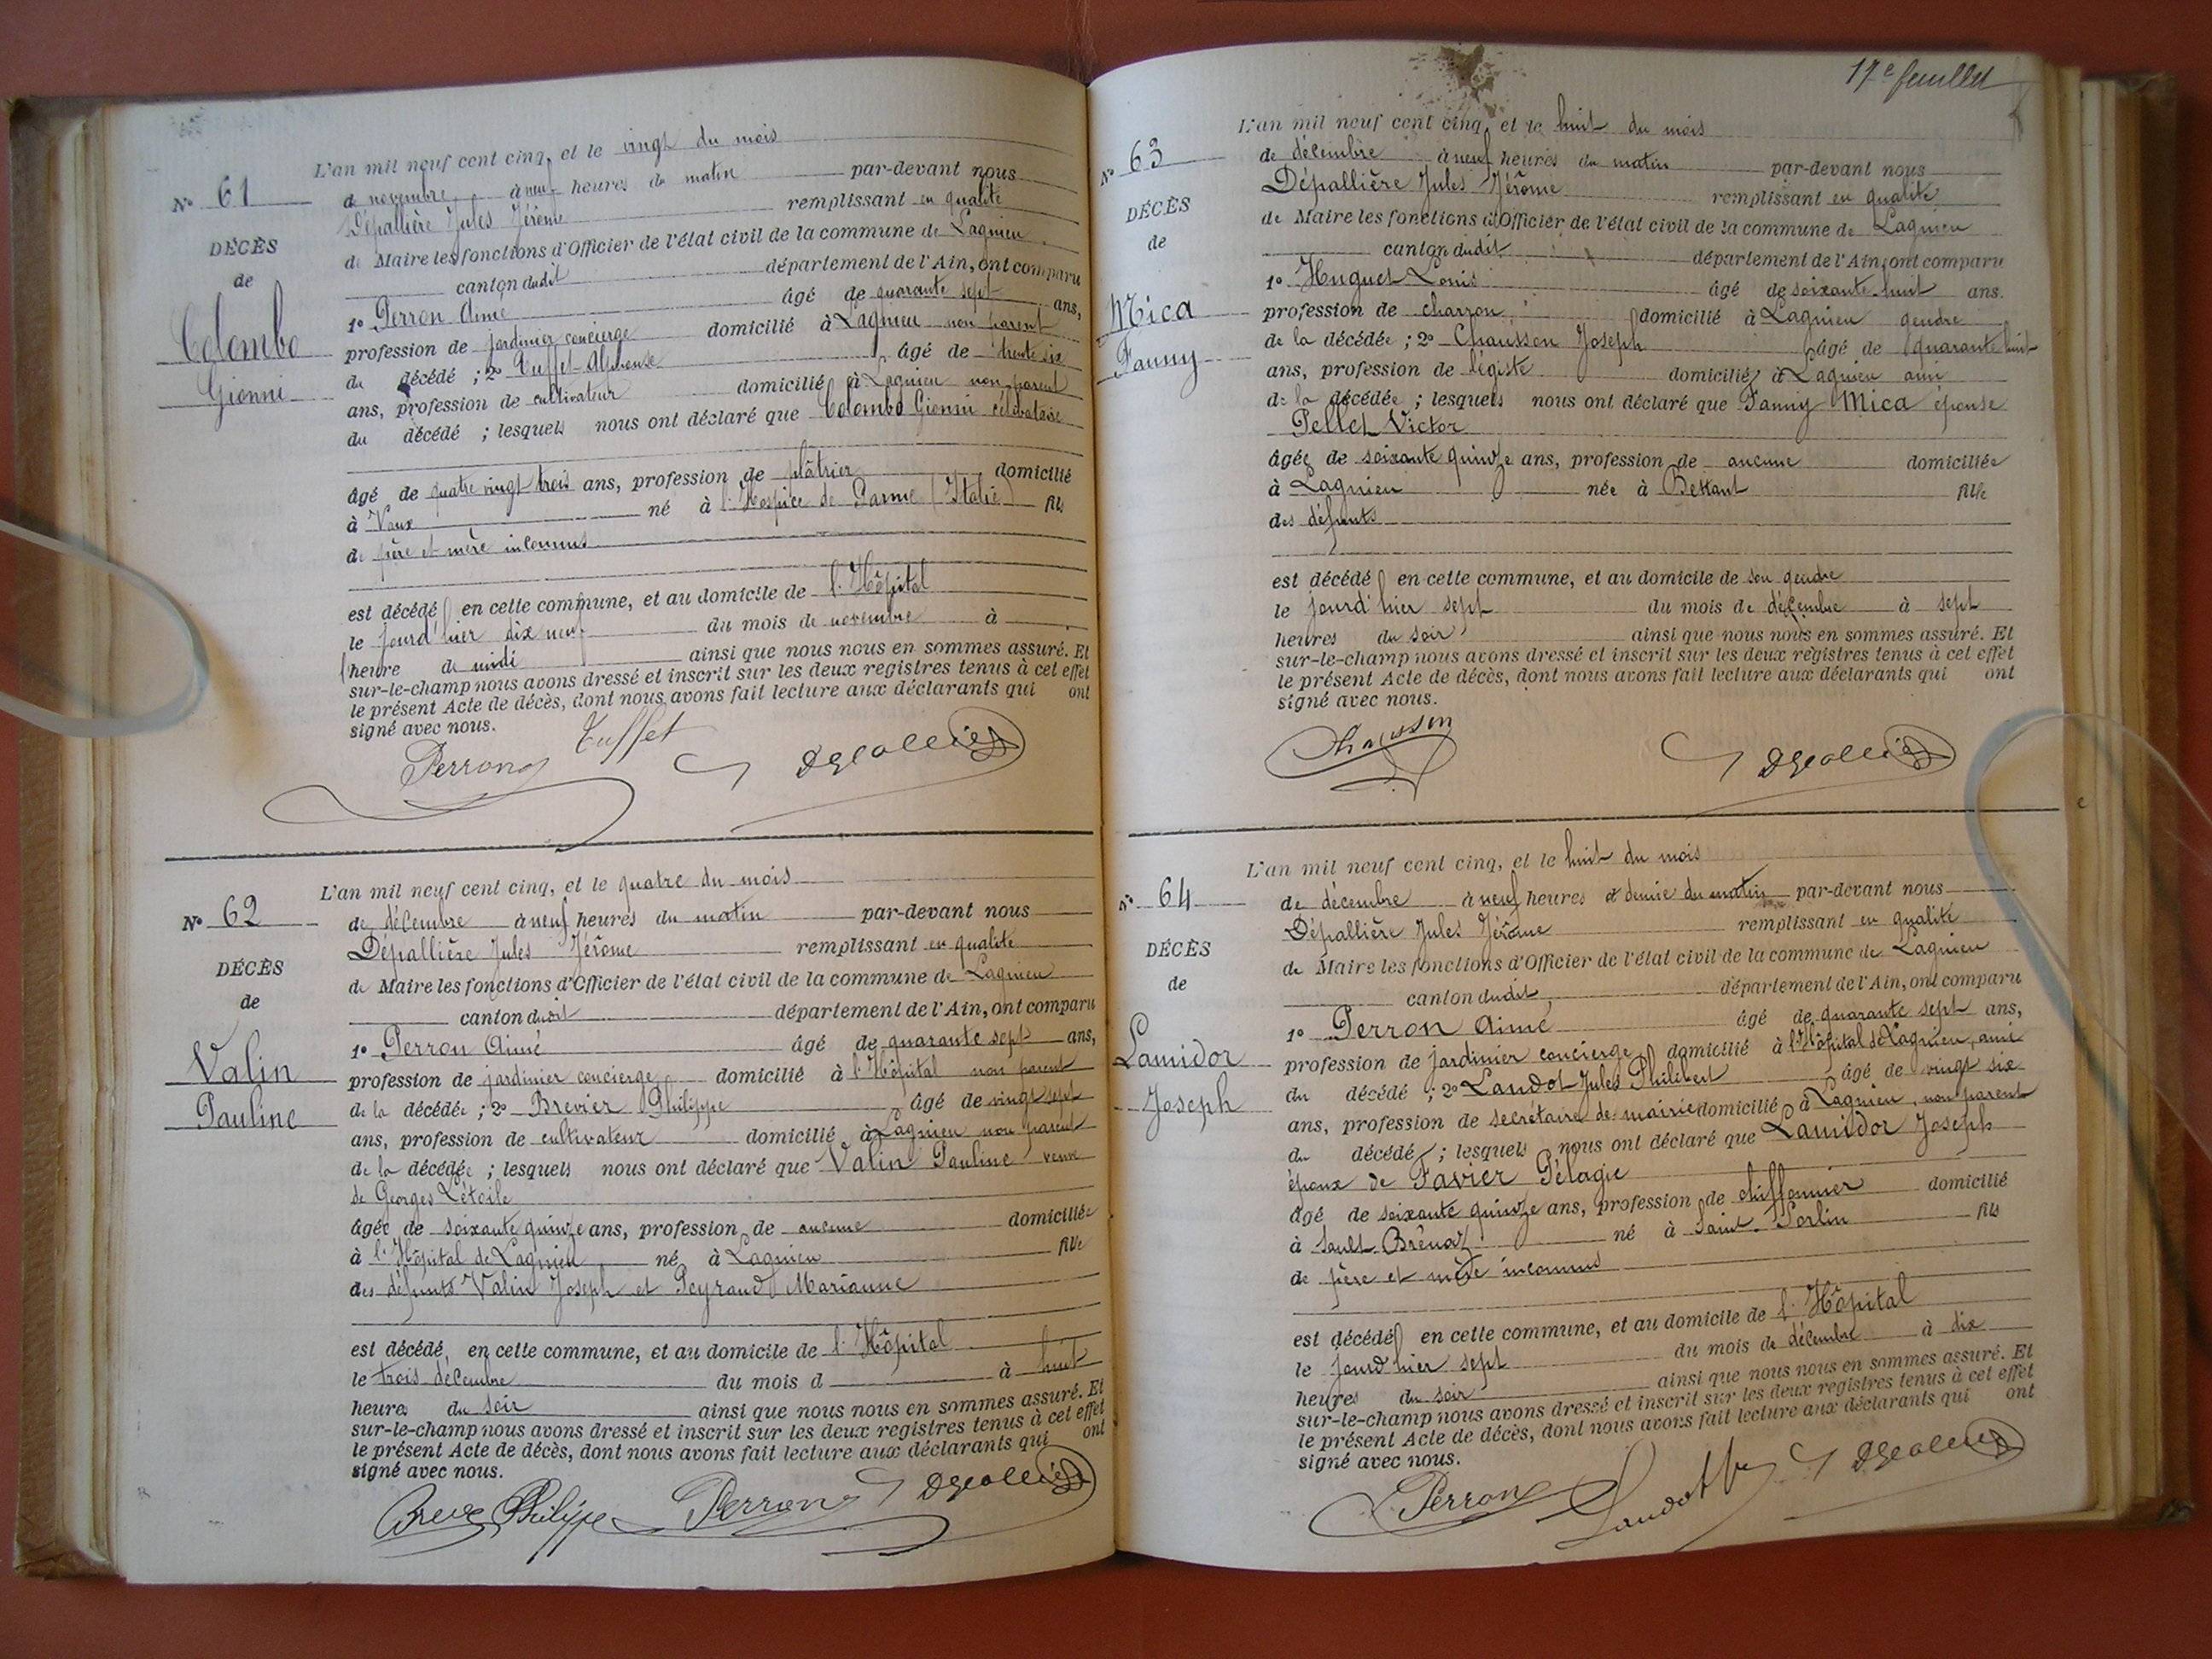 L'an mil neuf cent cinq, et le vingt du mois
N° 61
de novembre à neuf heures du matin par-devant nous
Dépallière Jules Jérôme remplissant en qualité
DÉCÈS
de Maire les fonctions d'Officier de l'état civil de la commune de Lagnieu
de
canton dudit département de l'Ain, ont comparu
Colombo
1° Perron Aimé âgé de quarante sept ans,
profession de jardinier concierge domicilié à Lagnieu non parent
Gionni
du décédé ; 2° Tuffet Alphonse âgé de trente six
ans, profession de cultivateur domicilié à Lagnieu non parent
du décédé ; lesquels nous ont déclaré que Colombo Gionni célibataire
âgé de quatre vingt trois ans, profession de plâtrier domicilié
à Vaux né à l'Hospice de Parme (Italie) fils
de père et mère inconnus
est décédé en cette commune, et au domicile de l'Hôpital
le jourd'hier dix neuf du mois de novembre à
heure de midi ainsi que nous nous en sommes assuré. Et
sur-le-champ nous avons dressé et inscrit sur les deux registres tenus à cet effet
le présent Acte de décès, dont nous avons fait lecture aux déclarants qui ont
signé avec nous.
Perron Tuffet
L'an mil neuf cent cinq, et le quatre du mois
N° 62
de décembre à neuf heures du matin par-devant nous
Dépallière Jules Jérôme remplissant en qualité
DÉCÈS
de Maire les fonctions d'Officier de l'état civil de la commune de Lagnieu
de
canton dudit département de l'Ain, ont comparu
Valin
1° Perron Aimé âgé de quarante sept ans,
profession de jardinier concierge domicilié à l'Hôpital non parent
Pauline
de la décédée ; 2° Brevier Philippe âgé de vingt sept
ans, profession de cultivateur domicilié à Lagnieu non parent
de la décédée ; lesquels nous ont déclaré que Valin Pauline veuve
de Georges Létoile
âgée de soixante quinze ans, profession de aucune domiciliée
à l'Hôpital de Lagnieu né à Lagnieu fille
des défunts Valin Joseph et Peyraud Marianne
est décédé en cette commune, et au domicile de l'Hôpital
le trois décembre du mois d à huit
heures du soir ainsi que nous nous en sommes assuré. Et
sur-le-champ nous avons dressé et inscrit sur les deux registres tenus à cet effet
le présent Acte de décès, dont nous avons fait lecture aux déclarants qui ont
signé avec nous.
Philippe Perron
17e feuillet
L'an mil neuf cent cinq, et le huit du mois
N° 63
de décembre à neuf heures du matin par-devant nous
Dépallière Jules Jérôme remplissant en qualité
DÉCÈS
de Maire les fonctions d'Officier de l'état civil de la commune de Lagnieu
de
canton dudit département de l'Ain, ont comparu
1° Huguet Louis âgé de soixante huit ans.
Mica
profession de charron domicilié à Lagnieu gendre
Fanny
de la décédée ; 2° Chausson Joseph âgé de quarante huit
ans, profession de légiste domicilié à Lagnieu ami
de la décédée ; lesquels nous ont déclaré que Fanny Mica épouse
Pellet Victor
âgée de soixante quinze ans, profession de aucune domiciliée
à Lagnieu née à Bettant fille
des défunts
est décédé en cette commune, et au domicile de son gendre
le jourd'hier sept du mois de décembre à sept
heures du soir ainsi que nous nous en sommes assuré. Et
sur-le-champ nous avons dressé et inscrit sur les deux registres tenus à cet effet
le présent Acte de décès, dont nous avons fait lecture aux déclarants qui ont
signé avec nous.
Chausson
L'an mil neuf cent cinq, et le huit du mois
N° 64
de décembre à neuf heures et demie du matin par-devant nous
Dépallière Jules Jérôme remplissant en qualité
DÉCÈS
de Maire les fonctions d'Officier de l'état civil de la commune de Lagnieu
de
canton dudit département de l'Ain, ont comparu
1° Perron Aimé âgé de quarante sept ans,
Lamidor
profession de jardinier concierge domicilié à l'Hôpital de Lagnieu, ami
Joseph
du décédé ; 2° Landot Jules Philibert âgé de vingt six
ans, profession de secrétaire de mairie domicilié à Lagnieu, non parent
du décédé ; lesquels nous ont déclaré que Lamidor Joseph
époux de Favier Pélagie
âgé de soixante quinze ans, profession de chiffonnier domicilié
à Sault-Brénaz né à Saint-Sorlin fils
de père et mère inconnus
est décédé en cette commune, et au domicile de l'Hôpital
le jourd'hier sept du mois de décembre à dix
heures du soir ainsi que nous nous en sommes assuré. Et
sur-le-champ nous avons dressé et inscrit sur les deux registres tenus à cet effet
le présent Acte de décès, dont nous avons fait lecture aux déclarants qui ont
signé avec nous.
Perron Landot